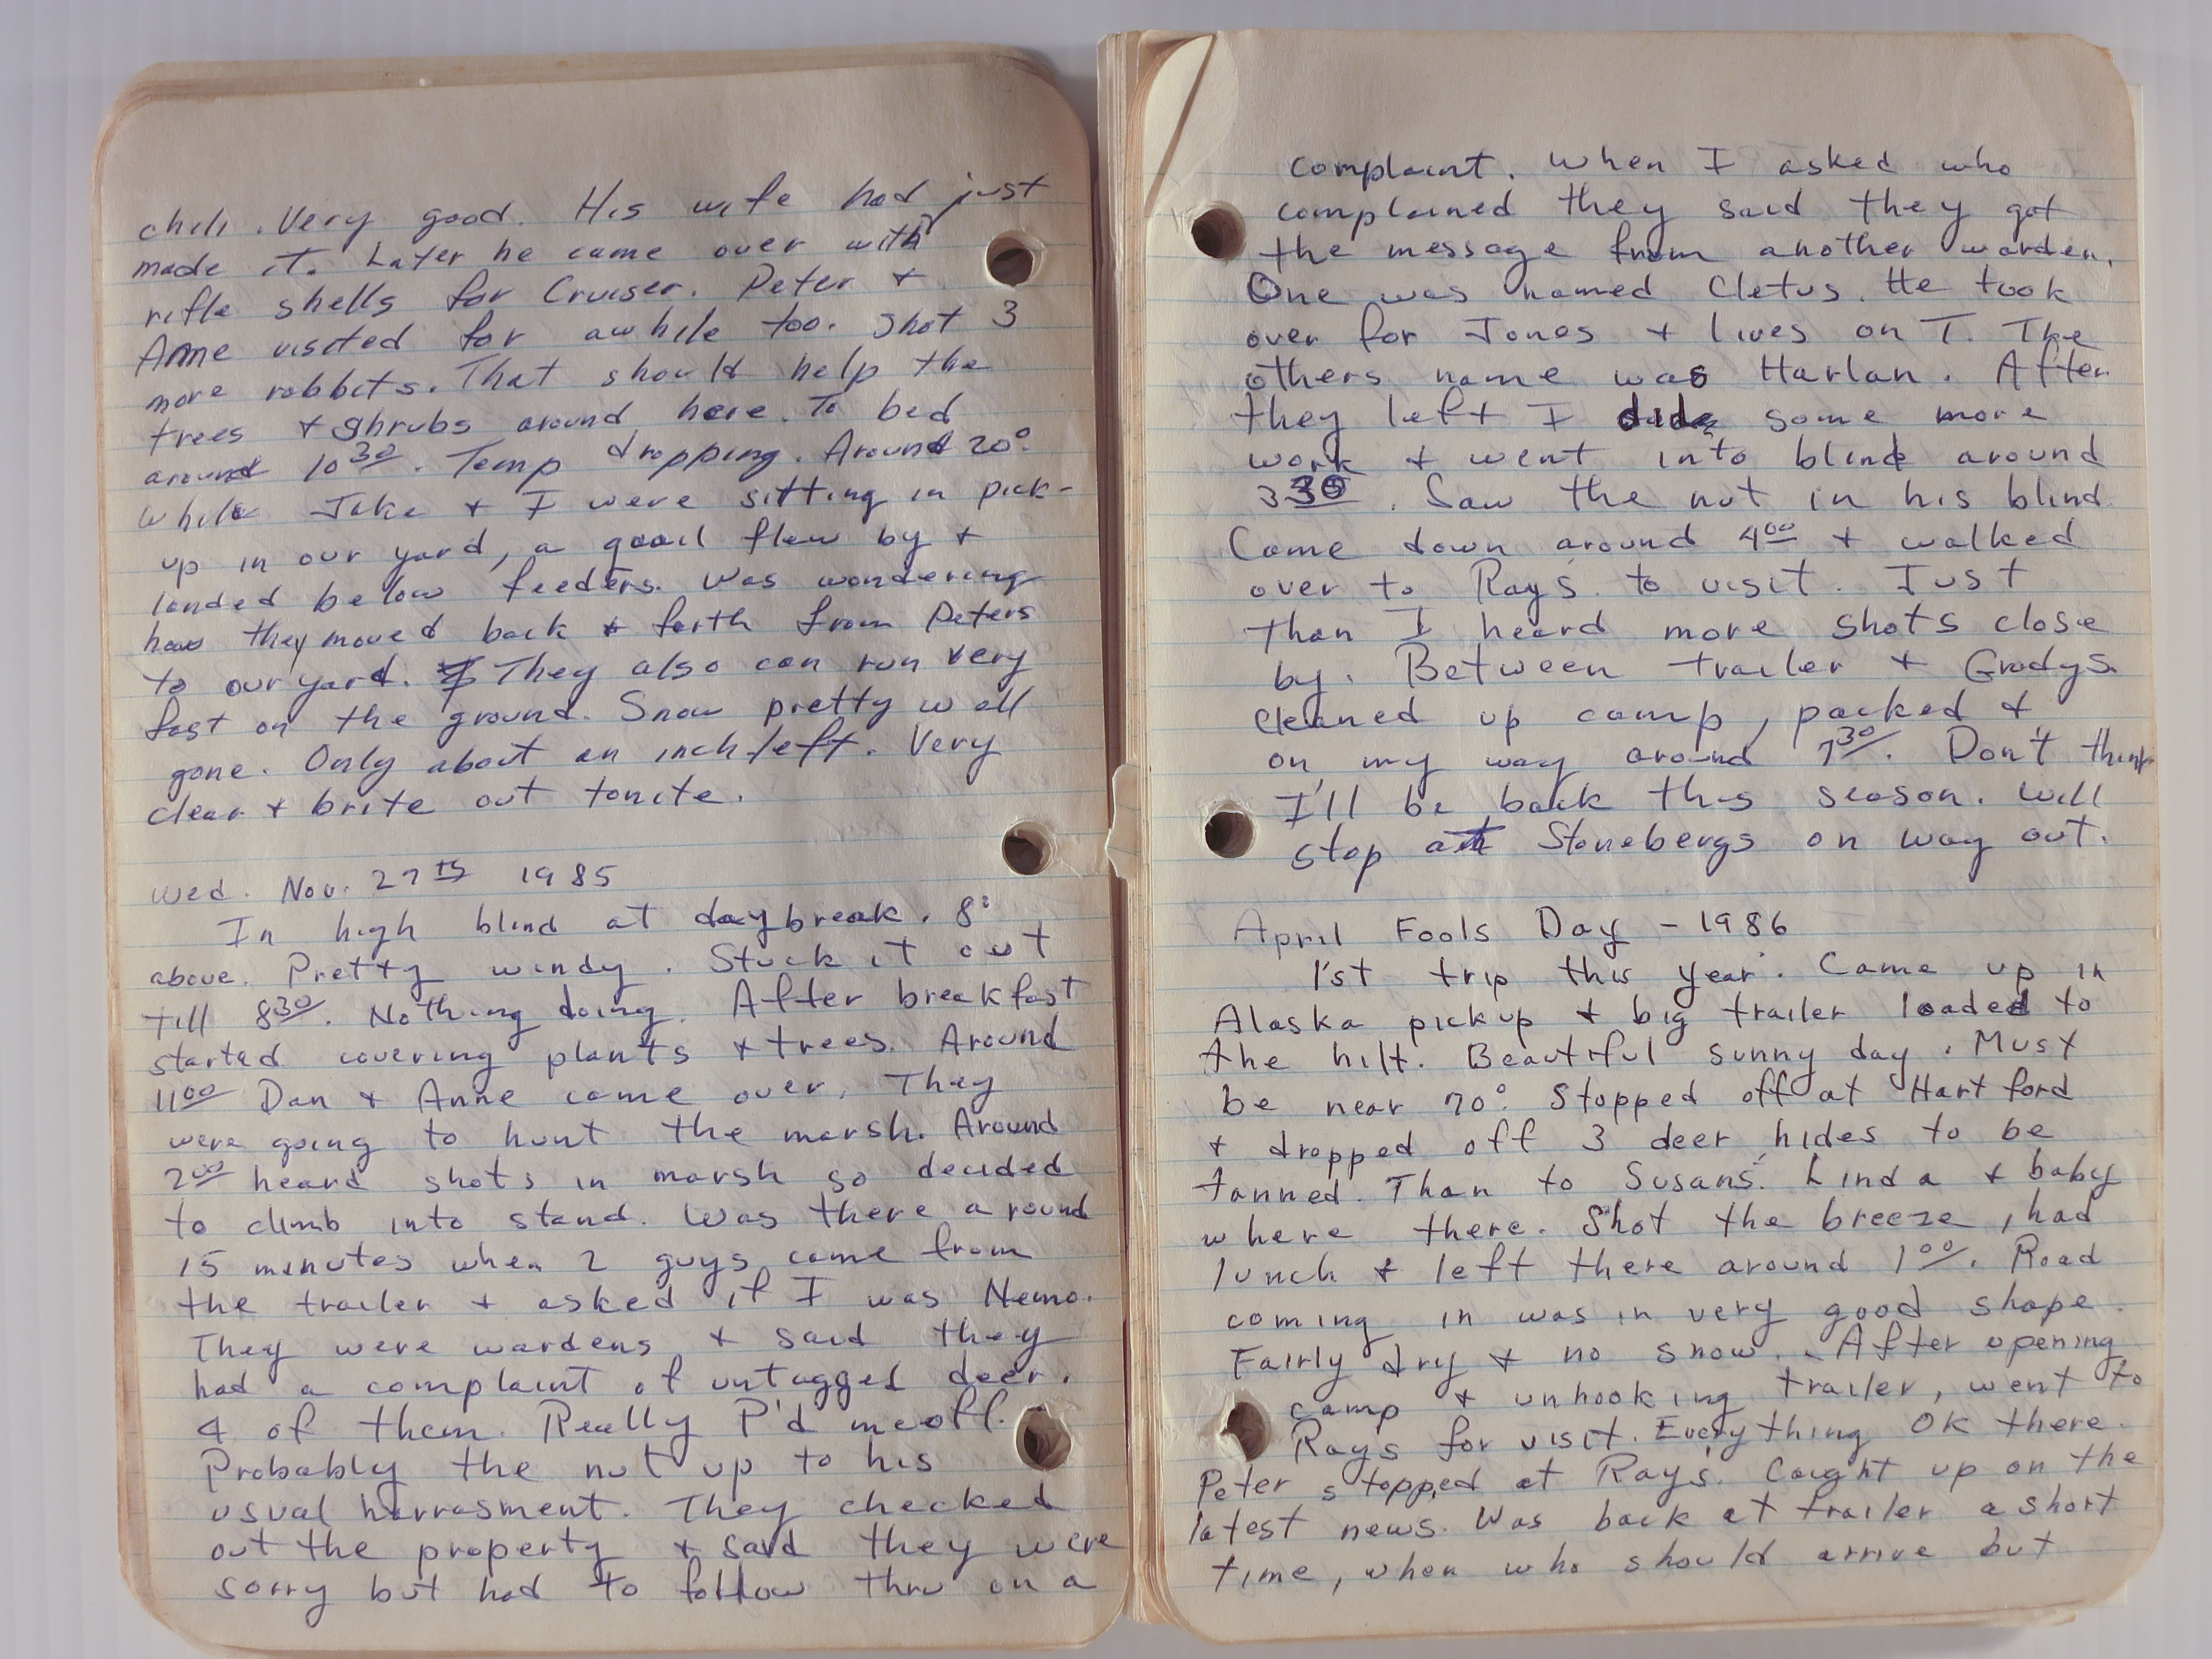 chili. Very good. His wife had just
made it. Later he came over with
rifle shells for Cruiser. Peter +
Anne visited for awhile too. Shot 3
more rabbits. That should help the
trees + shrubs around here. To bed
around 10 30. Temp dropping. Around 20°.
While Jake + I were sitting in pick-
up in our yard, a quail flew by +
landed below feeders. Was wondering
how they moved back + forth from Peters
to our yard. They also can run very
fast on the ground. Snow pretty well
gone. Only about an inch left. Very
clear + brite out tonite.
Wed. Nov. 27th 1985
In high blind at daybreak. 8°
above. Pretty windy. Stuck it out
till 8 30. Nothing doing. After breakfast
started covering plants + trees. Around
11 00 Dan + Anne came over. They
were going to hunt the marsh. Around
2 00 heard shots in marsh so decided
to climb into stand. Was there around
15 minutes when 2 guys came from
the trailer + asked if I was Nemo.
They were wardens + said they
had a complaint of untagged deer.
4 of them. Really P'd me off.
Probably the nut up to his
usual harrasment. They checked
out the property + said they were
sorry but had to follow thru on a
complaint. When I asked who
complained they said they got
the message from another warden.
One was named Cletus. He took
over for Jones + lives on T. The
others name was Harlan. After
they left I did some more
work + went into blind around
3 30. Saw the nut in his blind.
Came down around 4 00 + walked
over to Rays to visit. Just
than I heard more shots close
by. Between trailer + Gradys.
Cleaned up camp, packed +
on my way around 7 30. Don't think
I'll be back this season. Will
stop at Stonebergs on way out.
April Fools Day - 1986
1'st trip this year. Came up in
Alaska pickup + big trailer loaded to
the hilt. Beautiful sunny day. Must
be near 70°. Stopped off at Hartford
+ dropped off 3 deer hides to be
tanned. Than to Susans. Linda + baby
where there. Shot the breeze, had
lunch + left there around 1 00. Road
coming in was in very good shape.
Fairly dry + no snow. After opening
camp + unhooking trailer, went to
Rays for visit. Everything OK there.
Peter stopped at Rays. Caught up on the
latest news. Was back at trailer a short
time, when who should arrive but